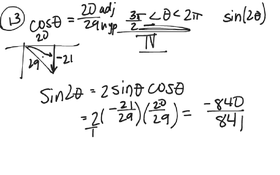 13 cosθ = 20 adj / 29 hyp 3π/2 < θ < 2π sin(2θ)
IV
20
29 -21
Sin2θ = 2 sinθ cosθ
= 2/1 (-21/29)(20/29) = -840/841